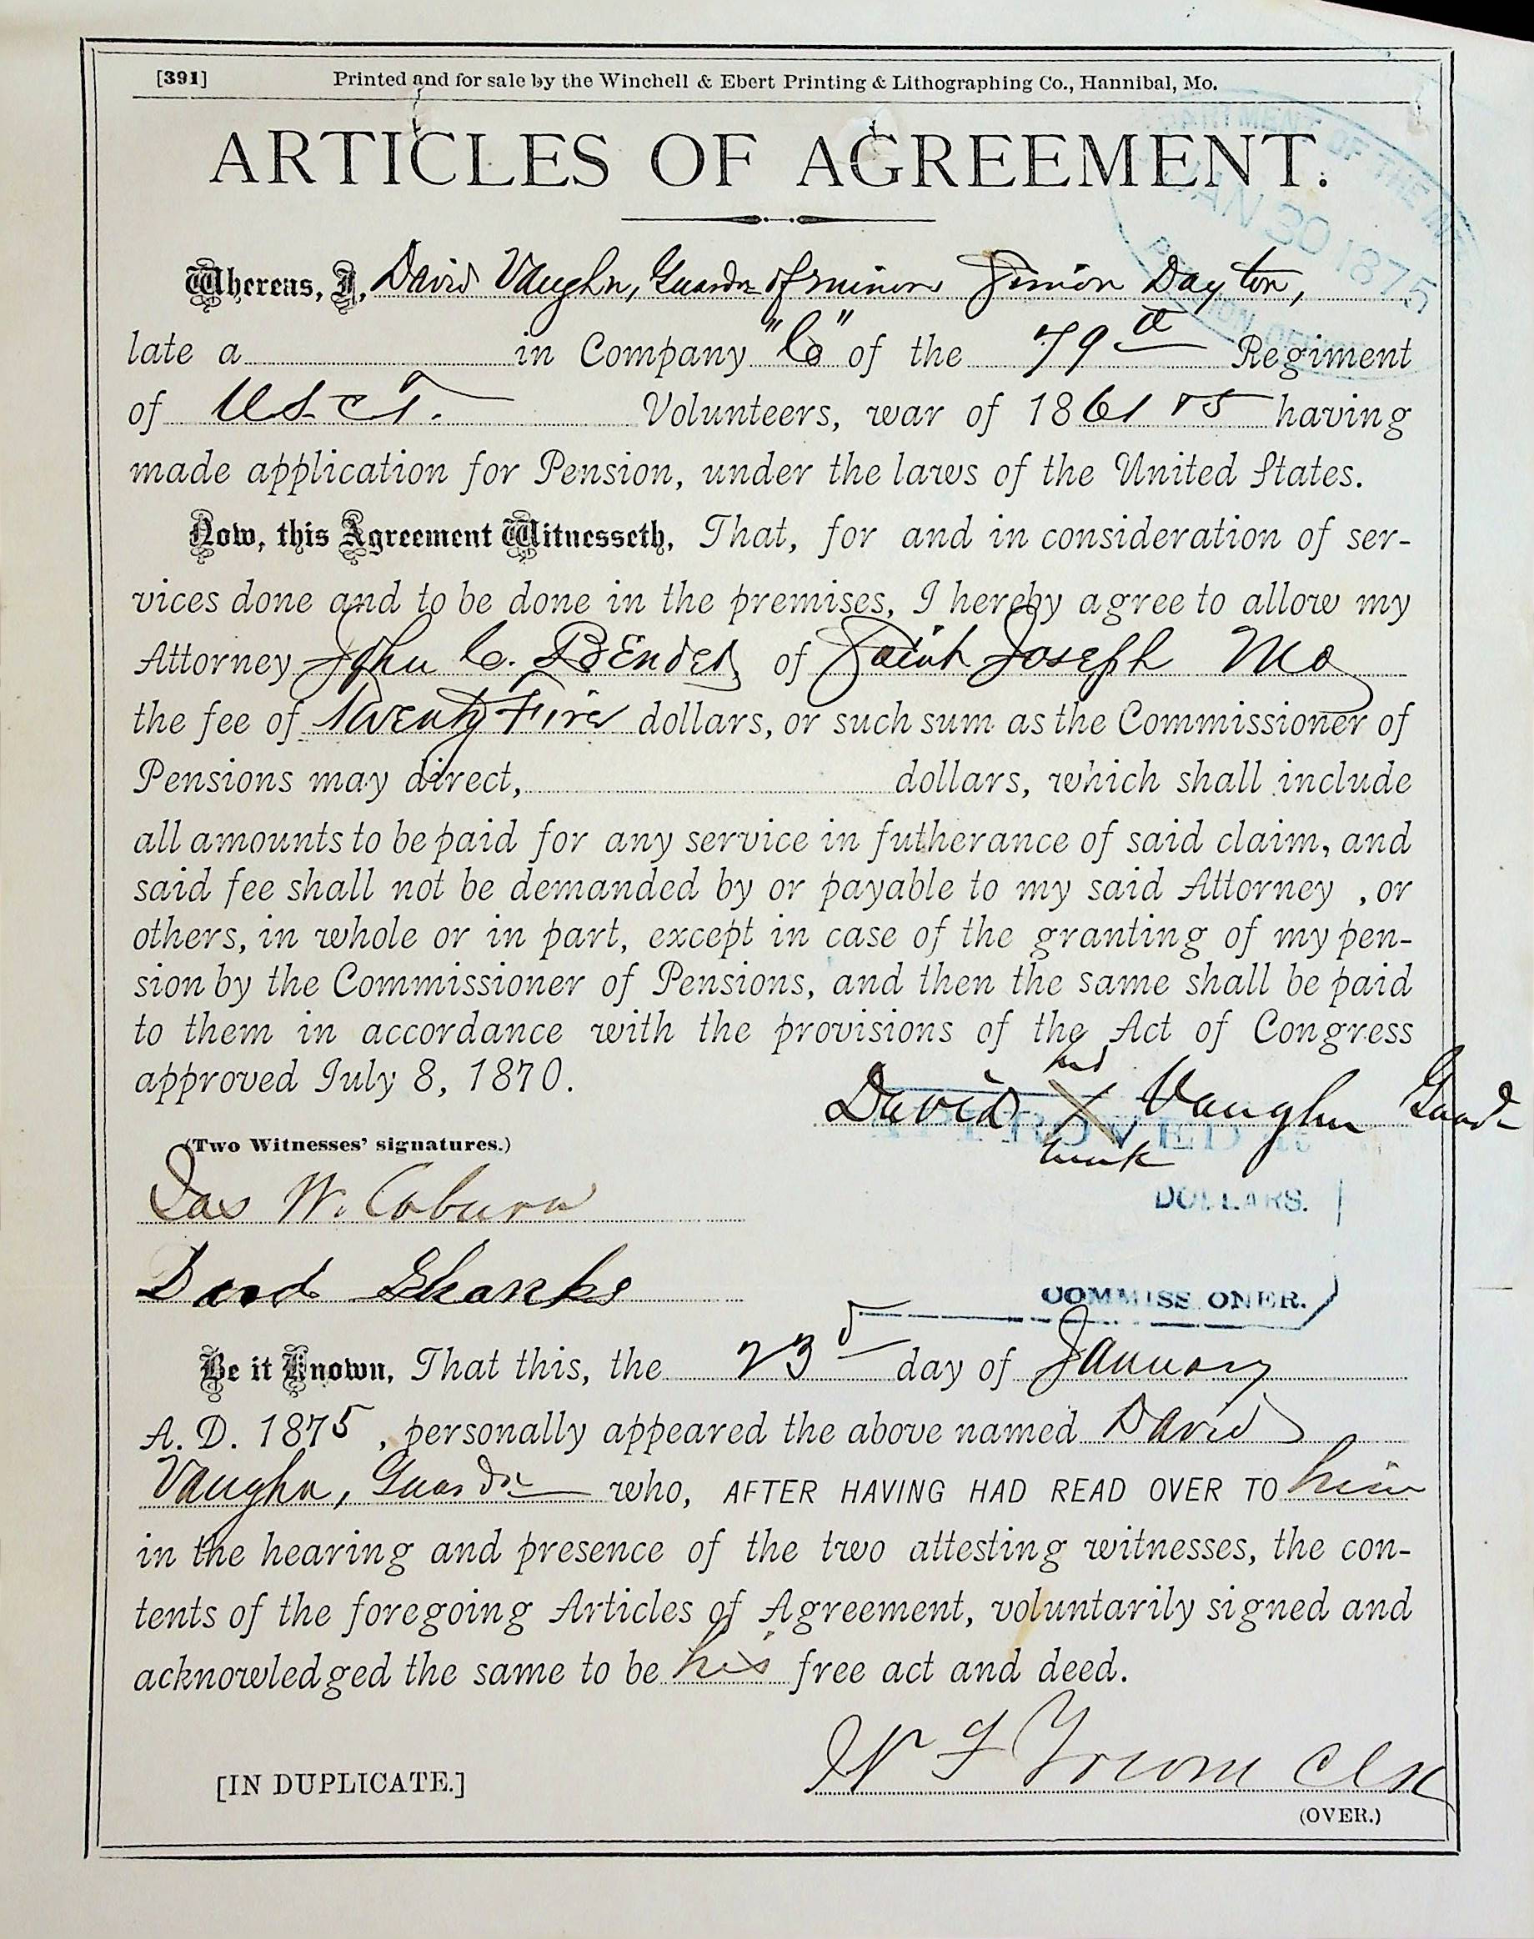 [391] Printed and for sale by the Winchell & Ebert Printing & Lithographing Co., Hannibal, Mo.
ARTICLES OF AGREEMENT.
DEPARTMENT OF THE INT
JAN 30 1875
PENSION OFFICE
Whereas, I, David Vaughn, Guardn of minors Simon Dayton,
late a in Company "C" of the 79th Regiment
of U.S.C.T. Volunteers, war of 1861 & 5 having
made application for Pension, under the laws of the United States.
Now, this Agreement Witnesseth, That, for and in consideration of ser-
vices done and to be done in the premises, I hereby agree to allow my
Attorney John C. Bender of Saint Joseph Mo
the fee of Twenty Five dollars, or such sum as the Commissioner of
Pensions may direct, dollars, which shall include
all amounts to be paid for any service in futherance of said claim, and
said fee shall not be demanded by or payable to my said Attorney , or
others, in whole or in part, except in case of the granting of my pen-
sion by the Commissioner of Pensions, and then the same shall be paid
to them in accordance with the provisions of the Act of Congress
approved July 8, 1870.
his
David X Vaughn Guardn
mark
APPROVED
(Two Witnesses' signatures.)
Jas W. Coburn
DOLLARS.
David Shanks
COMMISSIONER.
Be it Known, That this, the 23d day of January
A. D. 1875, personally appeared the above named David
Vaughn, Guardn who, AFTER HAVING HAD READ OVER TO him
in the hearing and presence of the two attesting witnesses, the con-
tents of the foregoing Articles of Agreement, voluntarily signed and
acknowledged the same to be his free act and deed.
W F Clk
[IN DUPLICATE.]
(OVER.)